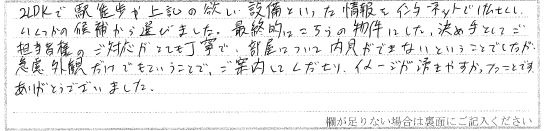 2LDKで駅徒歩や上記の欲しい設備といった情報をインターネットで
いくつかの候補から選びました。最終的にこちらの物件にした、決め手としてご
担当者様のご対応がとても丁寧で、部屋について内見ができないということでしたが
急遽外観だけでもということで、ご案内してくださり、イメージが湧きやすかったことです
ありがとうございました。
欄が足りない場合は裏面にご記入ください